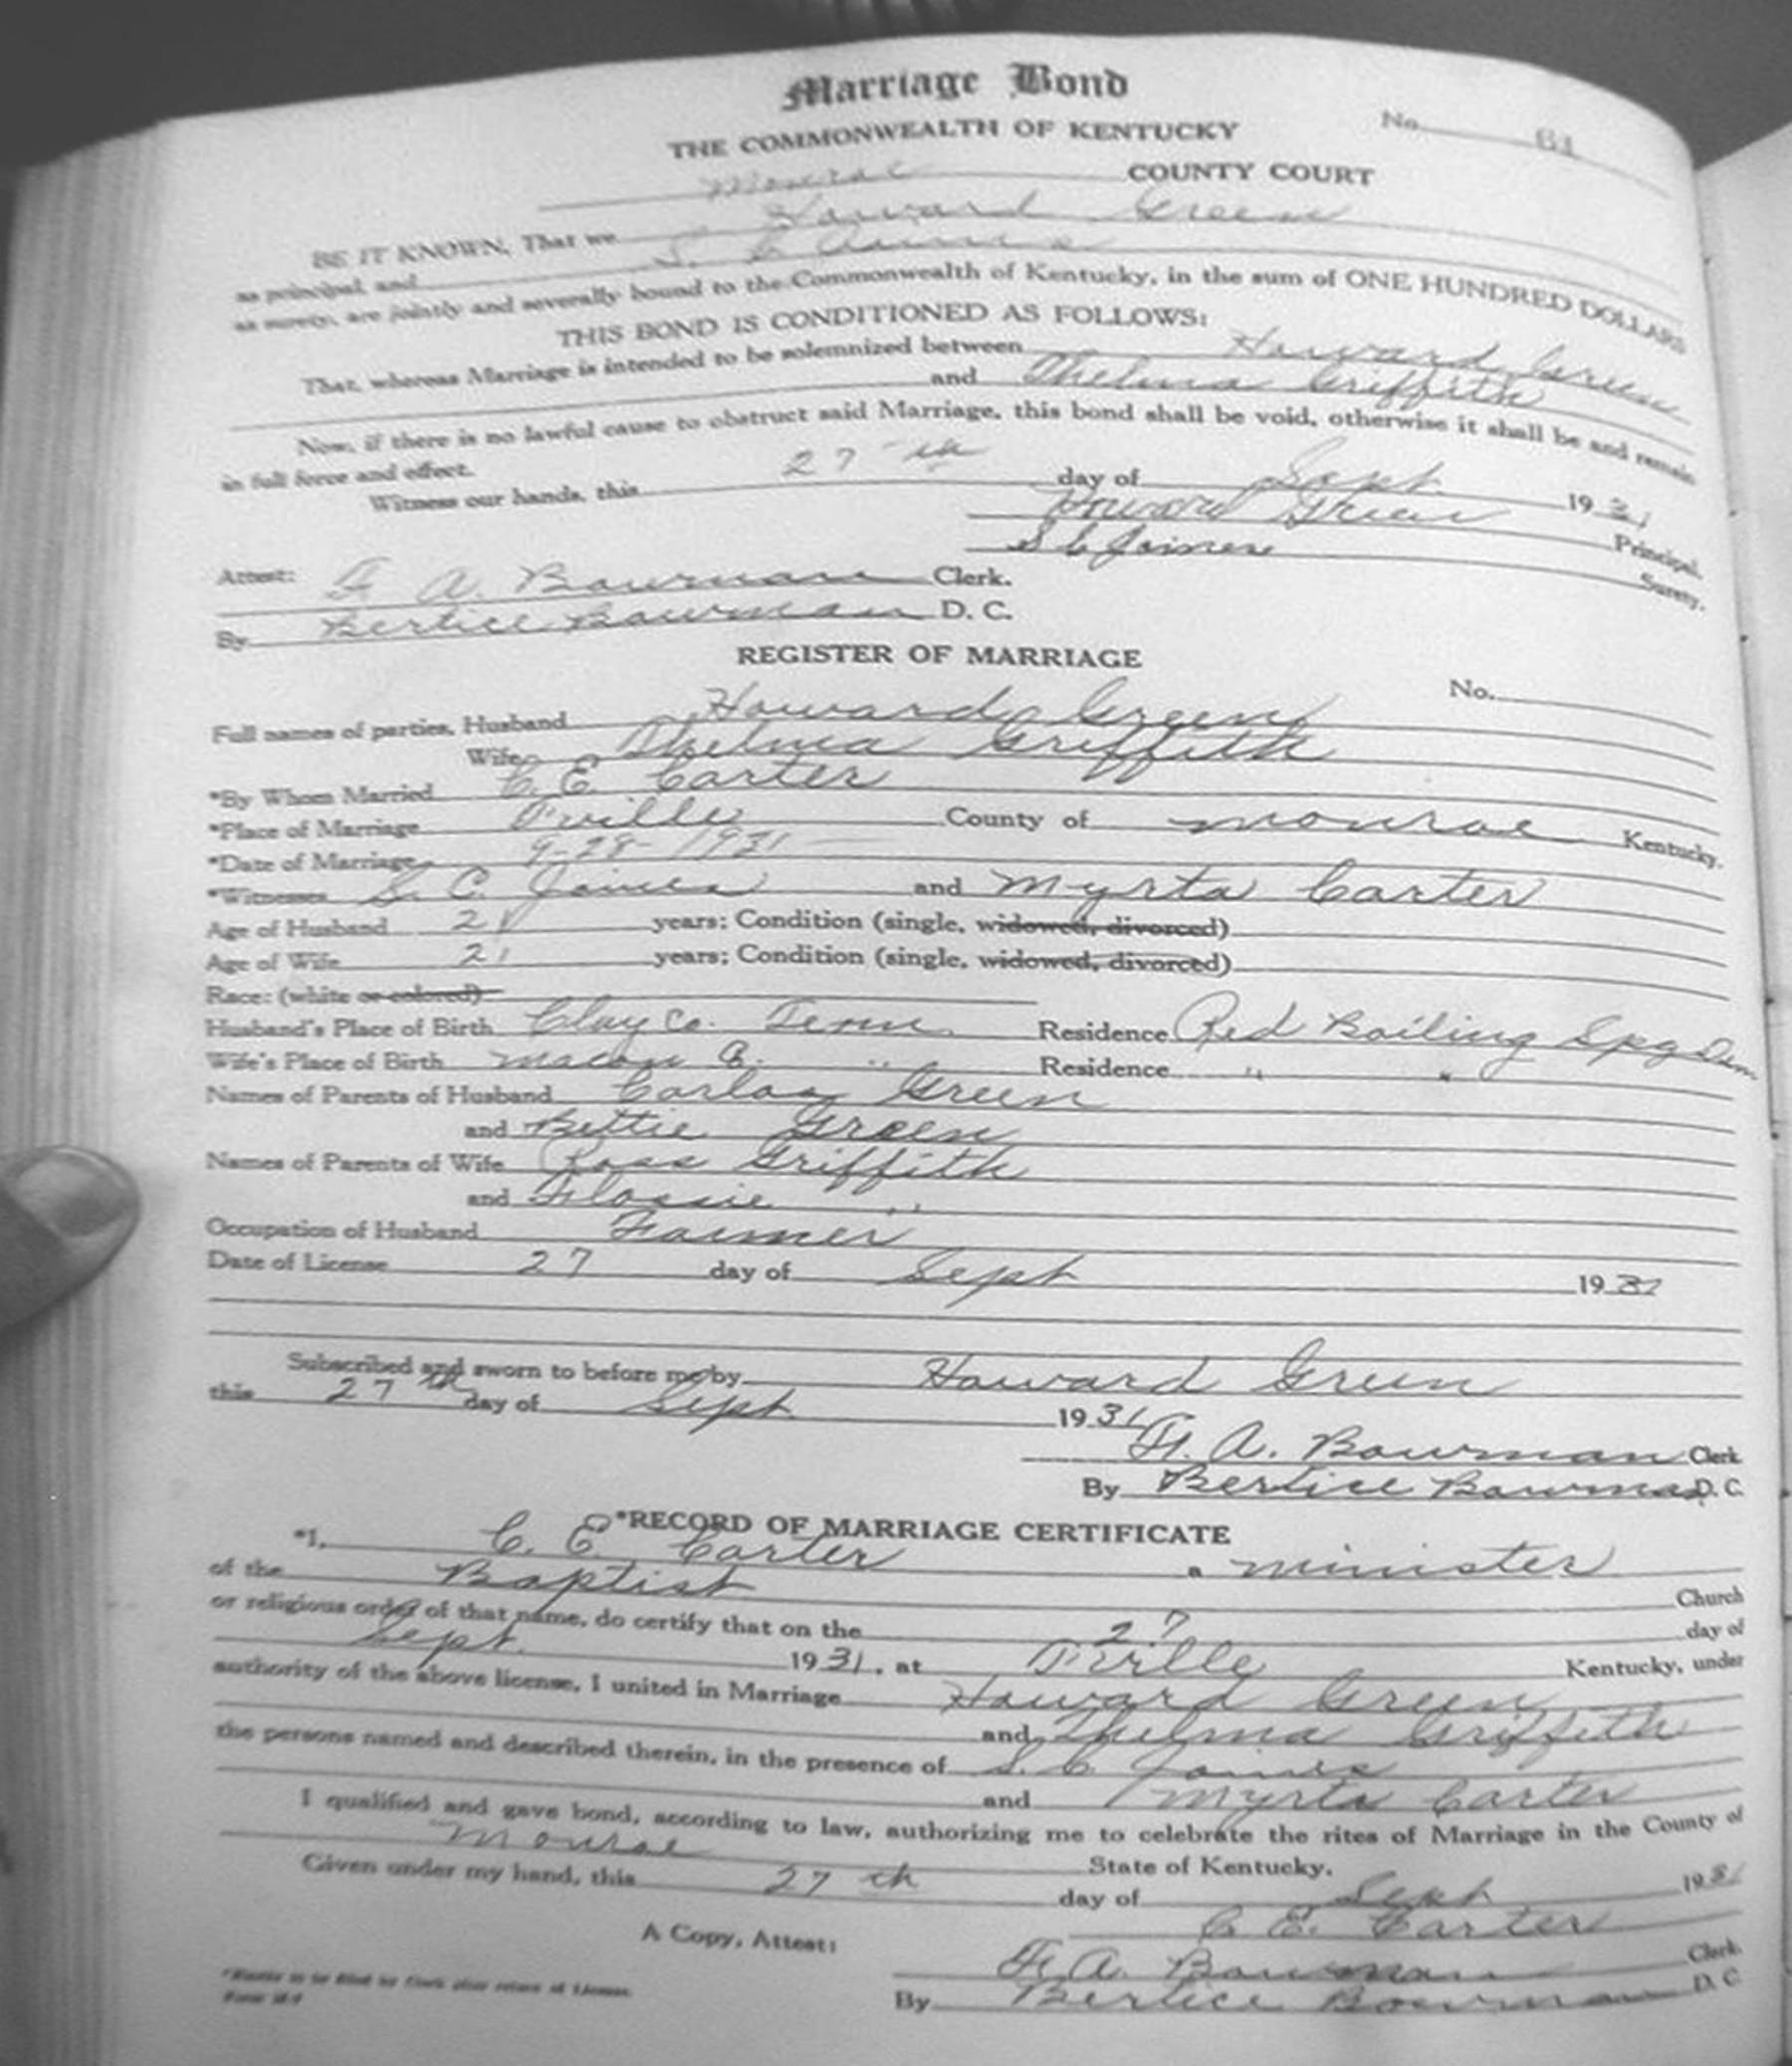 Marriage Bond
THE COMMONWEALTH OF KENTUCKY No. 61
Monroe COUNTY COURT
BE IT KNOWN, That we Howard Green
as principal, and S. C.
as surety, are jointly and severally bound to the Commonwealth of Kentucky, in the sum of ONE HUNDRED DOLLARS
THIS BOND IS CONDITIONED AS FOLLOWS:
That, whereas Marriage is intended to be solemnized between Howard Green
and Thelma Griffith
Now, if there is no lawful cause to obstruct said Marriage, this bond shall be void, otherwise it shall be and remain
in full force and effect.
Witness our hands, this 27th day of Sept. 1931
Howard Green Principal.
S C Joines Surety.
Attest: F. A. Bowman Clerk.
By Bertice Bowman D. C.
REGISTER OF MARRIAGE
No.
Full names of parties, Husband Howard Green
Wife Thelma Griffith
*By Whom Married C. E. Carter
*Place of Marriage T'ville County of Monroe Kentucky.
*Date of Marriage 9-28-1931
*Witnesses S. C. Joines and Myrta Carter
Age of Husband 21 years; Condition (single, widowed, divorced)
Age of Wife 21 years; Condition (single, widowed, divorced)
Race: (white or colored)
Husband's Place of Birth Clay Co. Tenn. Residence Red Boiling Spg Tenn
Wife's Place of Birth Macon Co. " Residence " "
Names of Parents of Husband Carlos Green
and Bettie Green
Names of Parents of Wife Ross Griffith
and Flossie "
Occupation of Husband Farmer
Date of License 27 day of Sept 1931
Subscribed and sworn to before me by Howard Green
this 27th day of Sept 1931
F. A. Bowman Clerk
By Bertice Bowman D. C.
*RECORD OF MARRIAGE CERTIFICATE
*I, C. E. Carter a minister
of the Baptist Church
or religious order of that name, do certify that on the 27 day of
Sept. 1931, at T'ville Kentucky, under
authority of the above license, I united in Marriage Howard Green
and Thelma Griffith
the persons named and described therein, in the presence of S. C. Joines
and Myrta Carter
I qualified and gave bond, according to law, authorizing me to celebrate the rites of Marriage in the County of
Monroe State of Kentucky.
Given under my hand, this 27th day of Sept 1931
C. E. Carter
A Copy, Attest: F. A. Bowman Clerk.
By Bertice Bowman D. C.